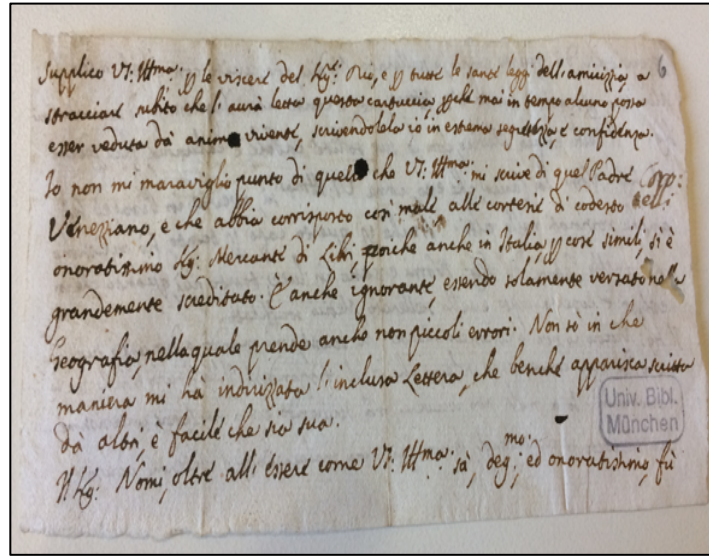 Supplico VS: Illma. p le viscere del Sigre. Dio, e p tutte le sante leggi dell'amicizia, a
6
stracciare subito che l'aurà letta questa cartuccia, pchè mai in tempo alcuno possa
esser veduta dà anima vivente, scrivendolela io in estrema segretezza, e confidenza.
Io non mi maraviglio punto di quello che VS: Illma: mi scive di quel Padre
Veneziano, e che abbia corrisposto così male alle cortesie di codesto
onoratissimo Sig: Mercante di Libri, poiche anche in Italia, p cose simili, si è
grandemente screditato. È anche ignorante, essendo solamente versato nella
Geografia, nella quale prende anche non piccoli errori. Non sò in che
maniera mi hà indirizzata l'inclusa Lettera, che benche apparisca scritta
dà altri, è facile che sia sua.
Il Sig: Nomi, oltre all'essere come VS: Illma: sà, degmo:, ed onoratissimo, fù
Univ. Bibl.
München